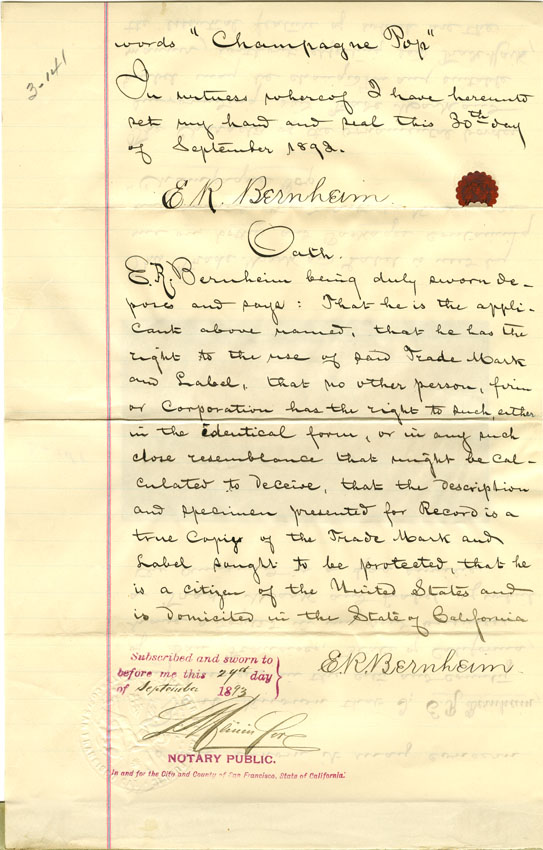 3-141
words "Champagne Pop"
In witness whereof I have hereunto
set my hand and seal this 30th day
of September 1893.
E. R. Bernheim
Oath.
E. R. Bernheim being duly sworn de-
poses and says: That he is the appli-
cant above named, that he has the
right to the use of said Trade Mark
and Label, that no other person, firm
or Corporation has the right to such, either
in the identical form, or in any such
close resemblance that might be cal-
culated to deceive, that the description
and specimen presented for Record is a
true Copy of the Trade Mark and
Label sought to be protected, that he
is a citizen of the United States and
is domiciled in the State of California
E. R. Bernheim.
Subscribed and sworn to
before me this day
of September 1893
NOTARY PUBLIC.
In and for the City and County of San Francisco, State of California.